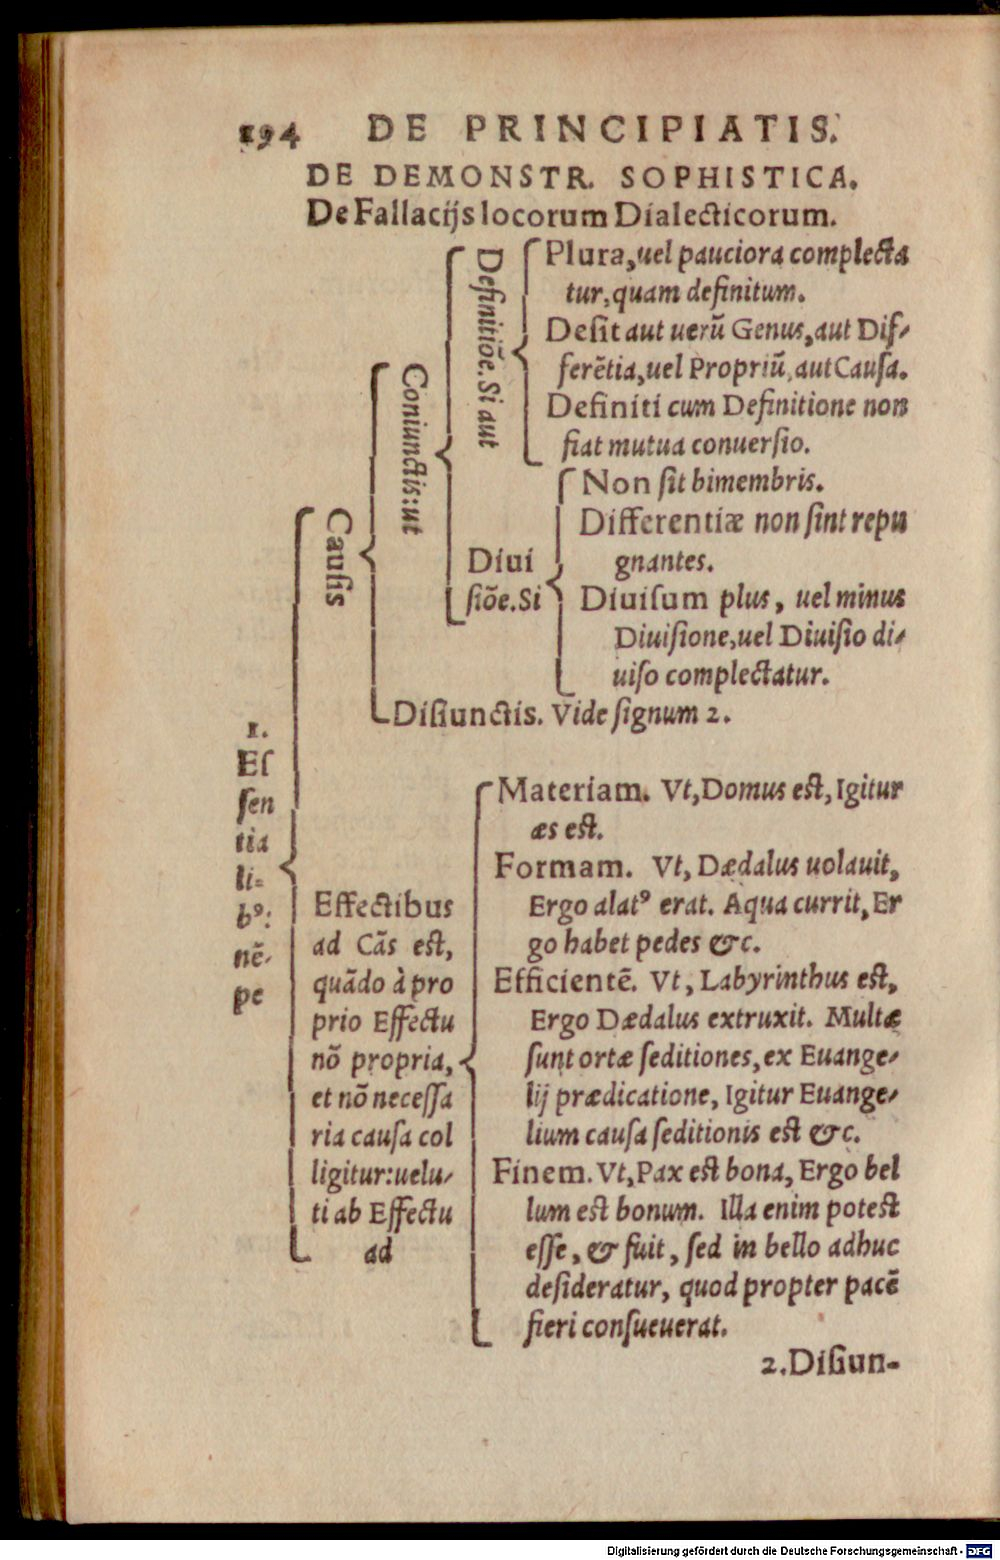 194 DE PRINCIPIATIS.
DE DEMONSTR. SOPHISTICA.
De Fallacijs locorum Dialecticorum.
1.
Eſ
ſen
tia
li-
bꝰ:
nē-
pe
Cauſis
Coniunctis: ut
Definitiōe. Si aut
Plura, uel pauciora complecta
tur, quam definitum.
Deſit aut uerū Genus, aut Dif-
ferētia, uel Propriū, aut Cauſa.
Definiti cum Definitione non
fiat mutua conuerſio.
Diui
ſiōe. Si
Non ſit bimembris.
Differentiæ non ſint repu
gnantes.
Diuiſum plus, uel minus
Diuiſione, uel Diuiſio di-
uiſo complectatur.
Diſiunctis. Vide ſignum 2.
Effectibus
ad Cās est,
quādo à pro
prio Effectu
nō propria,
et nō neceſſa
ria cauſa col
ligitur: uelu-
ti ab Effectu
ad
Materiam. Vt, Domus est, Igitur
æs est.
Formam. Vt, Dædalus uolauit,
Ergo alatꝰ erat. Aqua currit, Er
go habet pedes &c.
Efficientē. Vt, Labyrinthus est,
Ergo Dædalus extruxit. Multæ
ſunt ortæ ſeditiones, ex Euange-
lij prædicatione, Igitur Euange-
lium cauſa ſeditionis est &c.
Finem. Vt, Pax est bona, Ergo bel
lum est bonum. Illa enim potest
eſſe, & fuit, ſed in bello adhuc
deſideratur, quod propter pacē
fieri conſueuerat.
2. Diſiun-
Digitalisierung gefördert durch die Deutsche Forschungsgemeinschaft - DFG